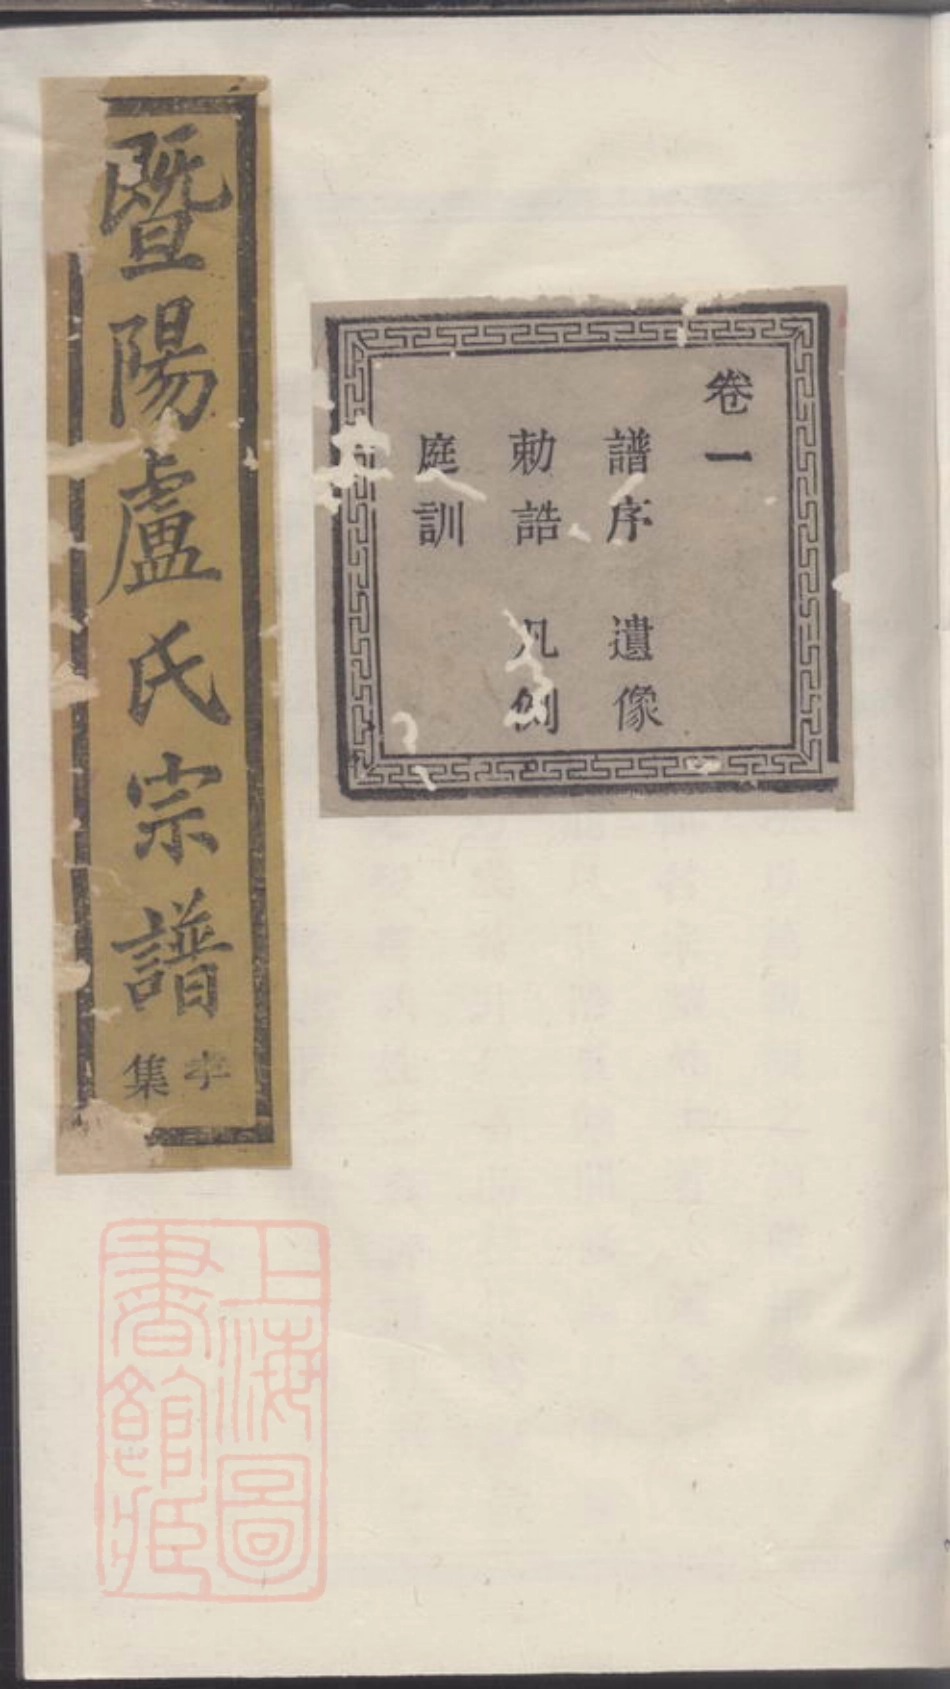 卷一
譜序　遺像
勅誥　凡例
庭訓
暨陽盧氏宗譜
集
上海圖
書館藏